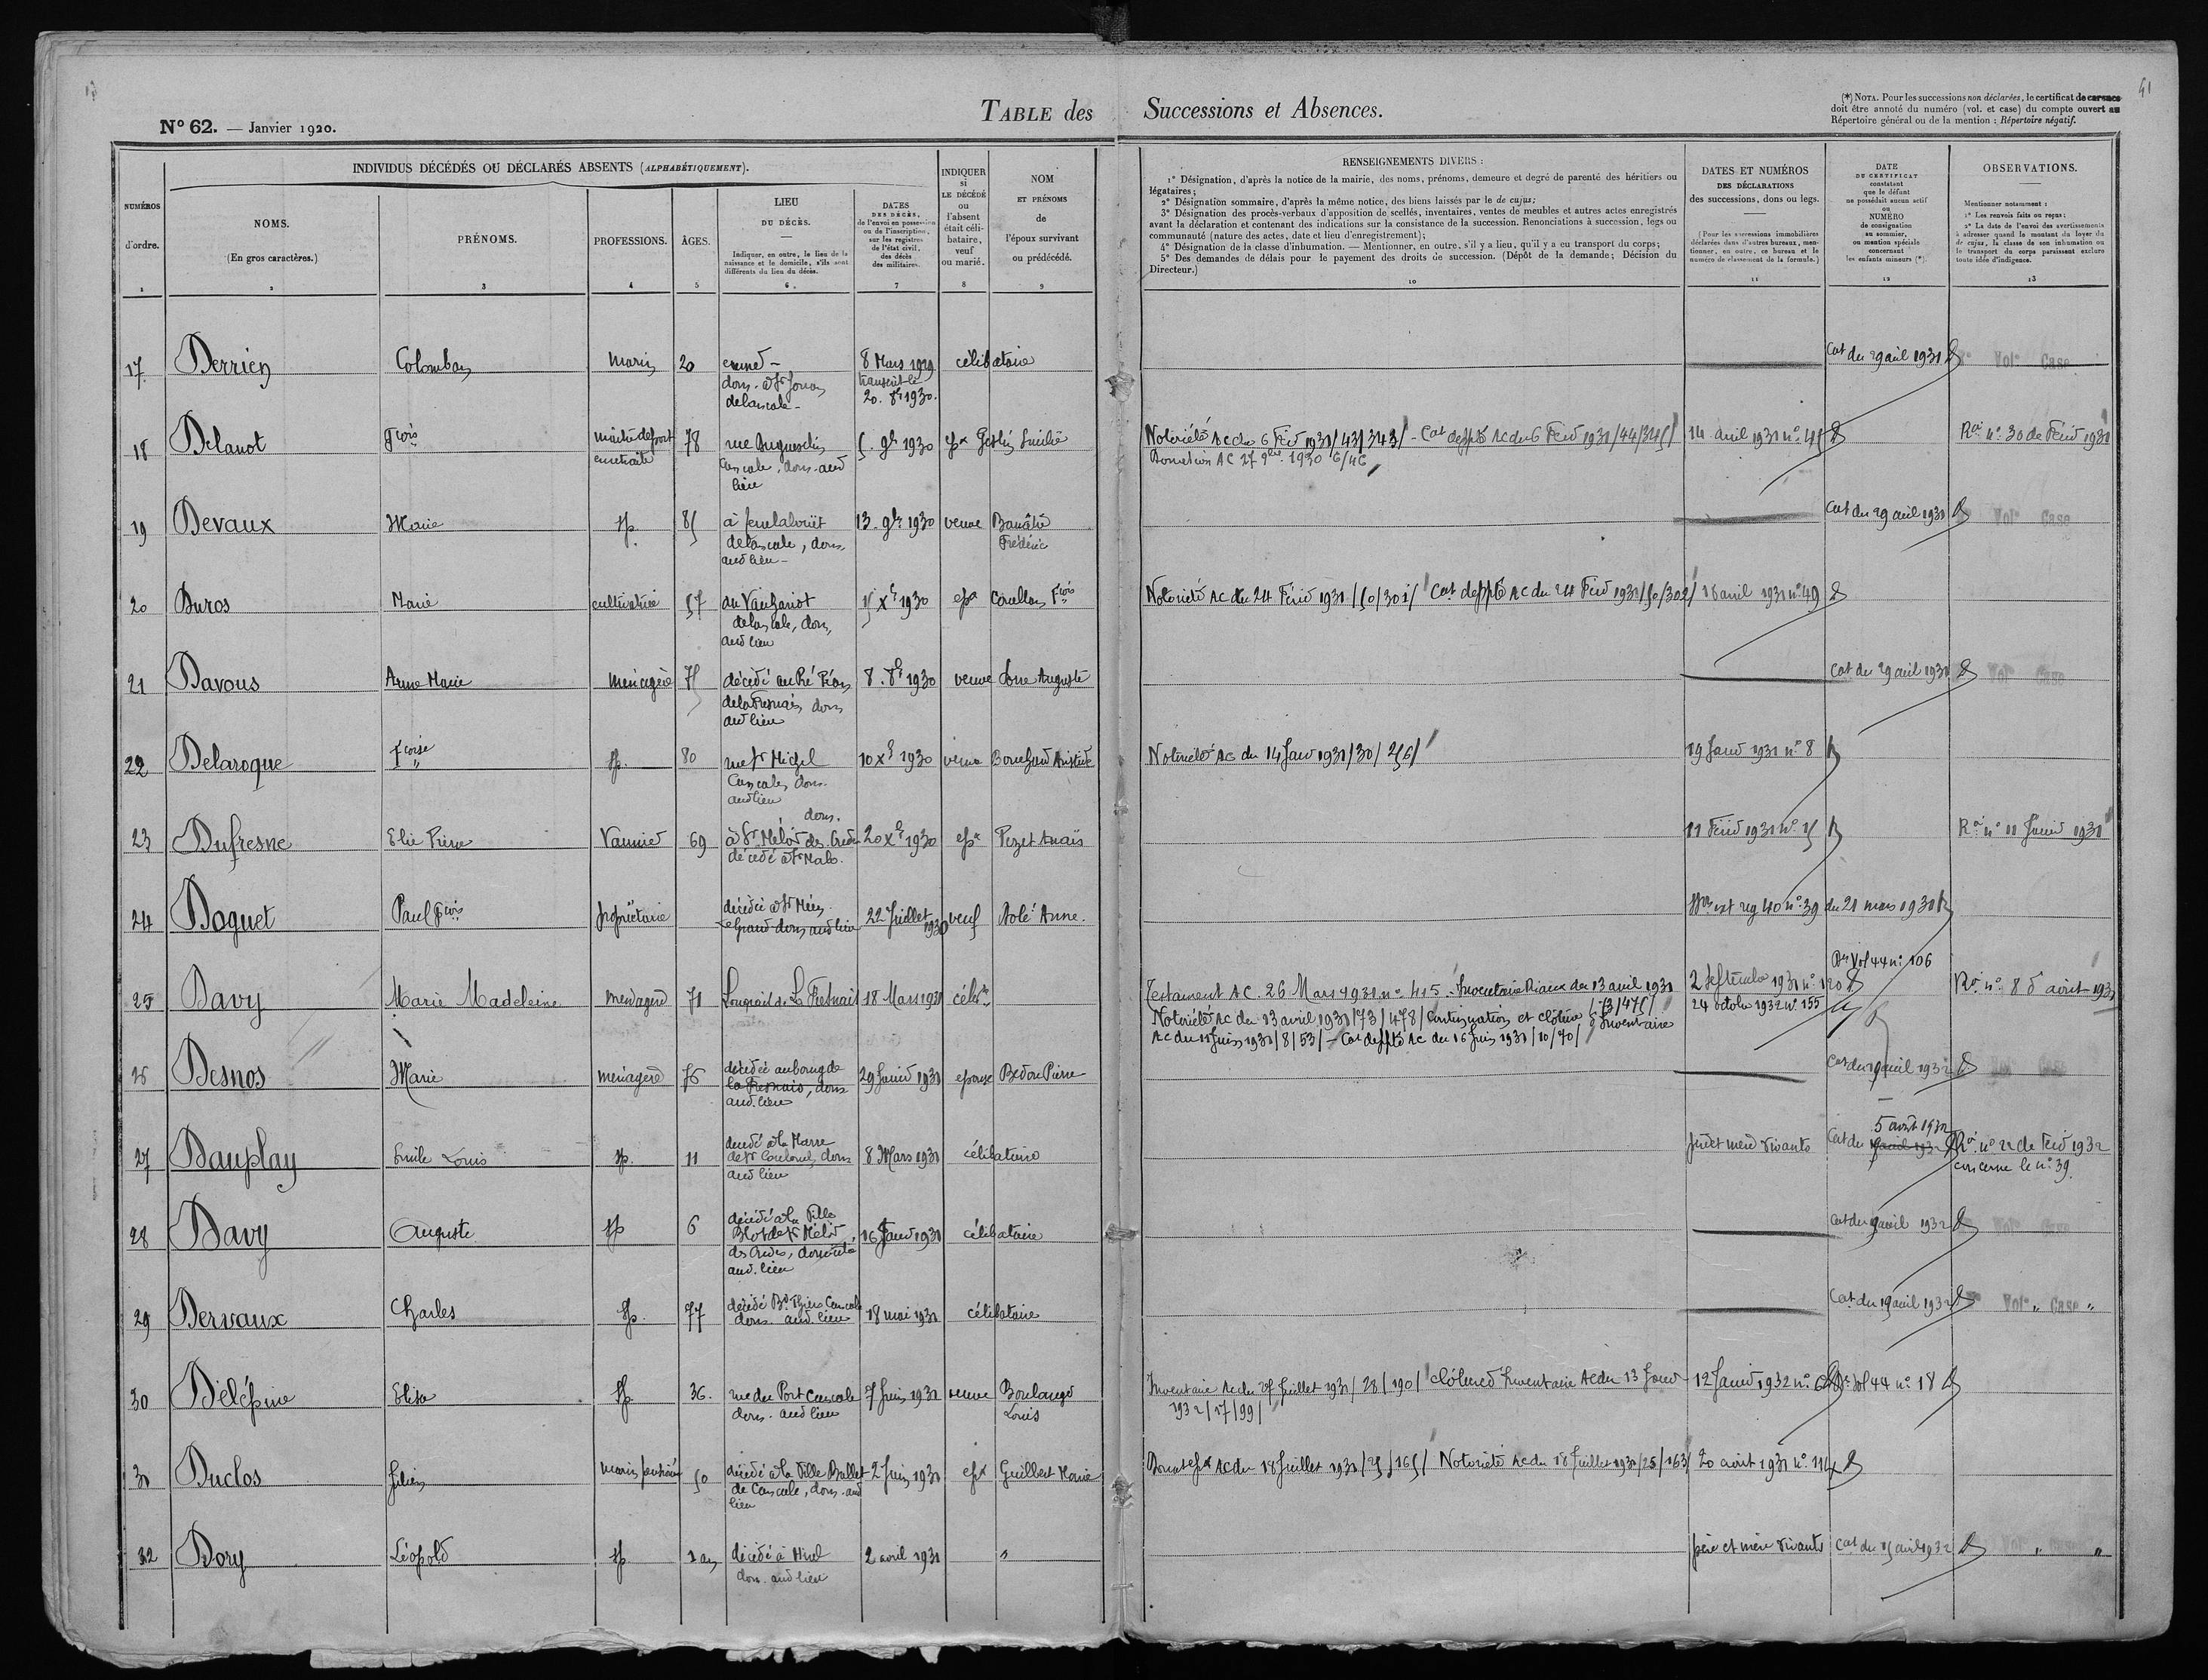 41
N° 62. — Janvier 1920.
TABLE des Successions et Absences.
(*) NOTA. Pour les successions non déclarées, le certificat de carence
doit être annoté du numéro (vol. et case) du compte ouvert au
Répertoire général ou de la mention : Répertoire négatif.
NUMÉROS
d'ordre.
1
INDIVIDUS DÉCÉDÉS OU DÉCLARÉS ABSENTS (ALPHABÉTIQUEMENT).
NOMS.
(En gros caractères.)
2
PRÉNOMS.
3
PROFESSIONS.
4
ÂGES.
5
LIEU
DU DÉCÈS.
Indiquer, en outre, le lieu de la
naissance et le domicile, s'ils sont
différents du lieu du décès.
6
DATES
DES DÉCÈS,
de l'envoi en possession
ou de l'inscription,
sur les registres
de l'état civil,
des décès
des militaires.
7
INDIQUER
si
LE DÉCÉDÉ
ou
l'absent
était céli-
bataire,
veuf
ou marié.
8
NOM
ET PRÉNOMS
de
l'époux survivant
ou prédécédé.
9
RENSEIGNEMENTS DIVERS :
1° Désignation, d'après la notice de la mairie, des noms, prénoms, demeure et degré de parenté des héritiers ou
légataires;
2° Désignation sommaire, d'après la même notice, des biens laissés par le de cujus;
3° Désignation des procès-verbaux d'apposition de scellés, inventaires, ventes de meubles et autres actes enregistrés
avant la déclaration et contenant des indications sur la consistance de la succession. Renonciations à succession, legs ou
communauté (nature des actes, date et lieu d'enregistrement);
4° Désignation de la classe d'inhumation. — Mentionner, en outre, s'il y a lieu, qu'il y a eu transport du corps;
5° Des demandes de délais pour le payement des droits de succession. (Dépôt de la demande; Décision du
Directeur.)
10
DATES ET NUMÉROS
DES DÉCLARATIONS
des successions, dons ou legs.
(Pour les successions immobilières
déclarées dans d'autres bureaux, men-
tionner, en outre, ce bureau et le
numéro de classement de la formule.)
11
DATE
DU CERTIFICAT
constatant
que le défunt
ne possédait aucun actif
ou
NUMÉRO
de consignation
au sommier,
ou mention spéciale
concernant
les enfants mineurs (*).
12
OBSERVATIONS.
Mentionner notamment :
1° Les renvois faits ou reçus;
2° La date de l'envoi des avertissements
à adresser quand le montant du loyer du
de cujus, la classe de son inhumation ou
le transport du corps paraissent exclure
toute idée d'indigence.
13
17 Derrien Colomban marin 20 8 Mars 1929 célibataire Cat du 29 avril 1931 Vol. Case
dom. à St Jouan transcrit le
de Cancale 20. 8bre 1930.
18 Delanot Fçois maître de port 78 rue Duguesclin 5. 9bre 1930 epx Gestin Emilie Notoriété AC du 6 Fév 1931/43/343/ - Cat de ppté AC du 6 Fév 1931/44/345/ 14 avril 1931 n° 45 Roi n° 30 de Fév 1931
en retraite Cancale, dom. aud Donation AC 27 9bre 1930 6/46
lieu
19 Devaux Marie sp. 85 13. 9bre 1930 veuve Cat du 29 avril 1931 Vol. Case
de Cancale, dom. Frédéric
aud lieu
20 Duros Marie cultivatrice 57 au Vauhariot 15 Xbre 1930 epse Fçois Notoriété AC du 24 Fév 1931/50/301/ Cat de ppté AC du 24 Fév 1931/50/302/ 16 avril 1931 n° 49
de Cancale, dom.
aud lieu
21 Davous Anne Marie ménagère 75 8. 8bre 1930 veuve Auguste Cat du 29 avril 1931 Vol. Case
de la Fresnais dom.
aud lieu
22 Delaroque Fçoise sp. 80 rue St Michel 10 Xbre 1930 veuve Aristide Notoriété AC du 14 Janv 1931/30/256/ 19 Janv 1931 n° 8
Cancale, dom.
aud lieu
23 Dufresne Elie Pierre Vannier 69 dom. à St Méloir des Ondes 20 Xbre 1930 epx Pezet Anaïs 11 Fév 1931 n° 15 Roi n° 11 Janvier 1931
décédé à St Malo.
24 Doquet Paul Fçois propriétaire décédé à St Méen 22 Juillet 1930 veuf Anne. reg 40 n° 39 du 21 mars 1931
le Grand dom. aud lieu
25 Davy Marie Madeleine ménagère 71 La Fresnais 18 Mars 1931 célibre Testament AC. 26 Mars 1931 n° 415. Inventaire du 13 avril 1931 /73/475/ 2 Septembre 1931 n° 120 Vol 44 n° 106 Roi n° 8 d'août 1931
Notoriété AC du 13 avril 1931/73/478/ continuation et clôture d'inventaire 24 octobre 1932 n° 155
AC du 11 Juin 1931/8/53/ - Cat de ppté AC du 16 Juin 1931/10/70/
26 Desnos Marie ménagère 76 décédée au bourg de 29 Janvier 1931 epouse Bedou Pierre Vol. Case
la Fresnais, dom.
aud. lieu
27 Dauplay Emile Louis sp. 11 8 Mars 1931 célibataire père et mère vivants Cat du 5 août 1932 Roi n° 22 de Fév 1932
de St Coulomb, dom. concerne le n° 39
aud lieu
28 Davy Auguste sp 6 décédé à la Ville 16 Janv 1931 célibataire avril 1932 Vol. Case
de St Méloir
des Ondes, domicilié
aud. lieu
29 Dervaux Charles sp. 77 décédé Bd Thiers Cancale 18 mai 1931 célibataire Cat du 19 avril 1932 Vol. " Case "
dom. aud. lieu
30 Delépine Elisa sp 36. rue du Port Cancale 7 Juin 1931 veuve Boulanger Inventaire AC du 27 Juillet 1931/28/190/ clôture d'Inventaire AC du 13 Janv 12 Janvier 1932 n° 6 Vol 44 n° 18
dom. aud lieu Louis 1932/17/99/
31 Duclos Julien marin pêcheur 50 décédé à la Ville Ballet 2 Juin 1931 epx Guilbert Marie AC du 18 Juillet 1931/25/165/ Notoriété AC du 18 Juillet 1931/25/163/ 20 août 1931 n° 114
de Cancale, dom. aud
lieu
32 Dory Léopold sp. 1 an décédé à Hirel 2 avril 1931 " père et mère vivants Cat du 15 avril 1932 Vol. " Case "
dom. aud lieu